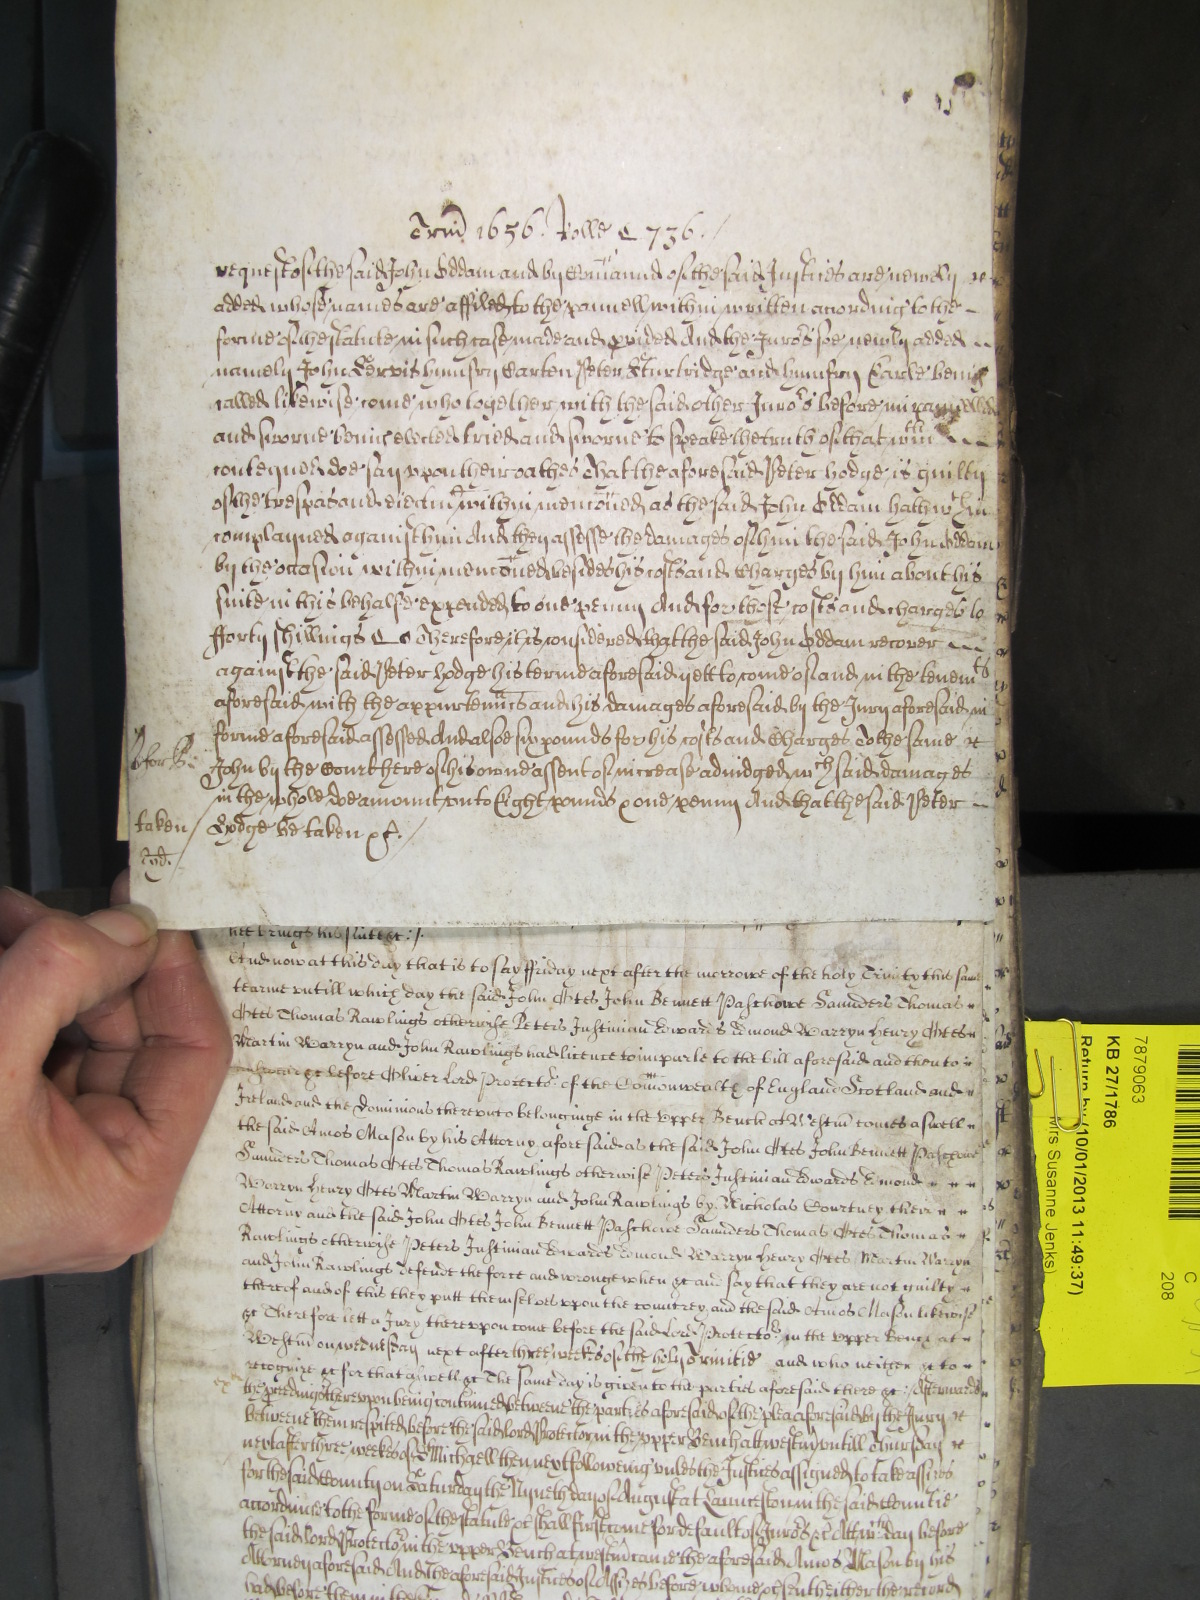 Trin 1656. Rolle 736.
request of the said John Oddam and by Comaund of the said Justices are newly
added whose names are affiled to the pannell within written according to the
forme of the statute in such case made and pvided And the Jurors soe newly added
namely John Humfry Carten Peter Sturtridge and Humfry Earle being
called likewise come who together with the said other Jurors before impannelled
and sworne being elected tried and sworne to speake the truth of that wthin
conteyned doe say vpon their oathes That the aforesaid Peter Hodge is guilty
of the trespas and eiectmt within menconed as the said John Oddam hath wthin
complayned against him And they assesse the damages of him the said John Oddam
by the occasion within menconed besides his costs and Charges by him about his
suite in this behalfe expended to one penny And for those costs and charges to
fforty shillings Therefore it is considered that the said John Oddam recover
against the said Peter Hodge his terme aforesaid yett to come of and in the tenemts
aforesaid with the appurtenncs and his damages aforesaid by the Jury aforesaid in
forme aforesaid assessed And alsoe six pounds for his costs and Charges To the same
John by the Court here of his owne assent of increase adiudged wch said damages
in the whole doe amount vnto Eight pounds & one penny And that the said Peter
taken
Hodge be taken &c.
hee brings his suite &c.
And now at this day that is to say ffriday next after the morrowe of the holy Trinity this same
tearme vntill which day the said John Otes John Bennett Paschowe Saunders Thomas
Otes Thomas Rawlings otherwise Peters Justinian Edwards Edmond Warryn Henry Otes
Martin Warryn and John Rawlings had licence to imparle to the bill aforesaid and then to
answear &c before Oliver Lord Protector of the Comonwealth of England Scotland and
Ireland and the Dominions therevnto belonginge in the vpper Bench at Westm comes aswell
the said Amos Mason by his Attorny aforesaid as the said John Otes John Bennett Paschowe
Saunders Thomas Otes Thomas Rawlings otherwise Peters Justinian Edwards Edmond
Warryn Henry Otes Martin Warryn and John Rawlings by Nicholas Courtney their
Attorny and the said John Otes John Bennett Paschowe Saunders Thomas Otes Thomas
Rawlings otherwise Peters Justinian Edwards Edmond Warryn Henry Otes Martin Warryn
and John Rawlings defende the force and wronge when &c and say that they are not guilty
thereof and of this they putt themselves vpon the countrey and the said Amos Mason likewise
&c Therefore lett a Jury therevpon come before the said Lord Protector in the vpper Bench at
Westm on wednesday next after three weekes of the holy Trinitie and who neither &c to
recognize &c for that aswell &c The same day is given to the parties aforesaid there &c Afterwards
the pceedings therevpon being continued betweene the parties aforesaid of the plea aforesaid by the Jury
betweene them respited before the said lord Protector in the vpper Bench att westm vntill Thursday
next after three weekes of St Michaell then next followeing vnles the Justices assigned to take assizes
for the said County on Saturday the Nyneth day of August at Launceston in the said Countie
according to the forme of the statute &c shall first come for default of Jurors &c Att wch day before
the said lord Protector in the vpper Bench at westm came the aforesaid Amos Mason by his
Attorney aforesaid And the aforesaid Justices of Assizes before whome &c sent heither there record
had before them in
7879063
KB 27/1786
Return by (10/01/2013 11:49:37)
Mrs Susanne Jenks)
C
208